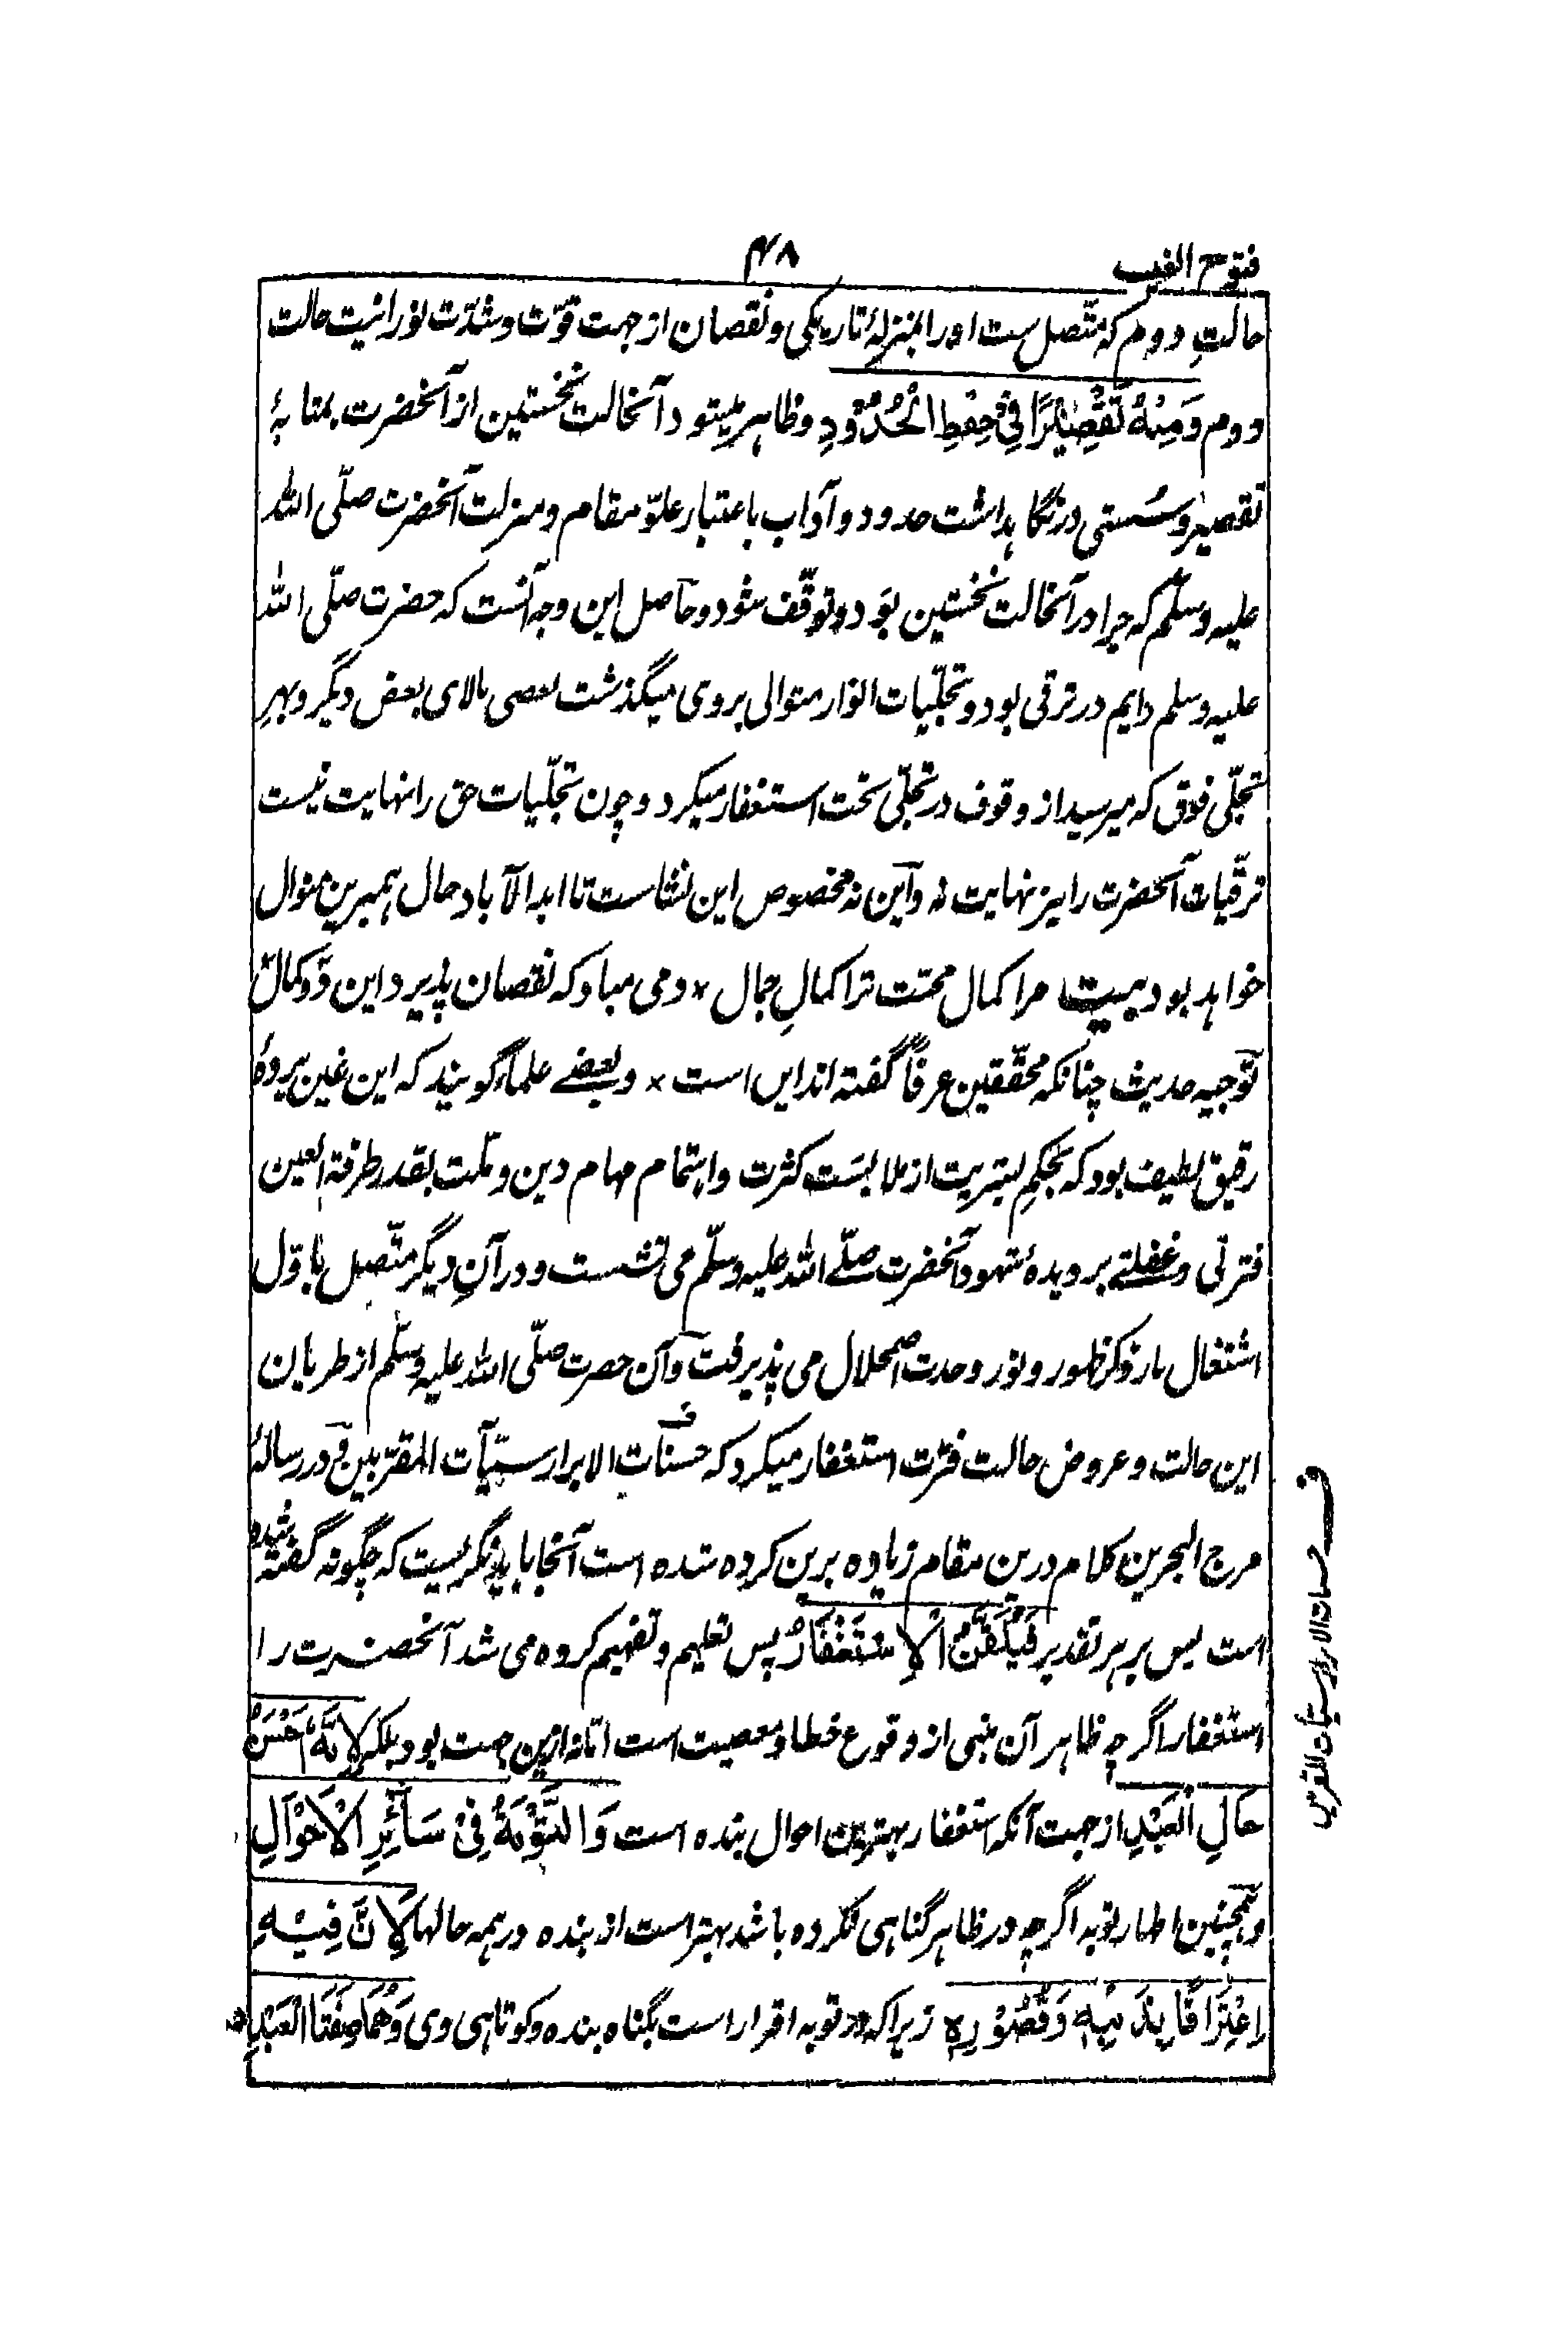 فتوح الغیب
۴۸
حالتِ دوم که متّصل ست اورا بمنزلهٔ تاریکی و نقصان از جهت قوّت و شدّت نورانیت حالت
دوم وَمِنْهُ تَقْصِیْرًا فِیْ حِفْظِ الْحُدُوْدِ و ظاهر میشود آنحالت نخستین از آنحضرت بمثابهٔ
تقصیر و سُستی در نگاهداشت حدود و آداب باعتبار علوّ مقام و منزلت آنحضرت صلّی الله
علیه وسلّم که چرا در آنحالت نخستین بوَد و توقّف شود و حاصل این وجه آنست که حضرت صلّی الله
علیه وسلم دایم در ترقی بود و تجلّیات انوار متوالی بروی میگذشت بعضی بالای بعض دیگر و بهر
تجلّی فوق که میرسید از وقوف در تجلّی تحت استغفار میکرد و چون تجلّیات حق را نهایت نیست
ترقّیات آنحضرت را نیز نهایت نه و این نه مخصوص این نشاست تا ابد الآباد حال همبرین منوال
خواهد بود بیت مرا کمال محبّت ترا کمالِ جمال × دمی مباد که نقصان پذیرد این دو کمال ×
توجیه حدیث چنانکه محقّقین عرفا گفته اند این است × و بعضے علماء گویند که این غین پردهٔ
رقیق لطیف بود که بحکمِ بشریت از ملابسَت کثرت و اهتمام مهام دین و ملّت بقدر طرفة العین
فترتی و غفلتے بر دیدهٔ شهود آنحضرت صلّے الله علیه وسلّم می نشست و در آنِ دیگر متّصل باوّل
اشتغال بذکر و ظهور نور وحدت اضمحلال می پذیرفت و آن حضرت صلّی الله علیه وسلّم از طریان
این حالت و عروض حالت فترت استغفار میکرد که حسنات الابرار سیّآت المقرّبین و در رسالهٔ
مرج البحرین کلام درین مقام زیاده برین کرده شده است آنجا باید نگریست که چگونه گفته شده
است پس بر هر تقدیر فَیُلَقَّنُ الْاِسْتِغْفَارُ پس تعلیم و تفهیم کرده می شد آنحضرت را
استغفار اگرچه ظاهر آن مبنی از وقوع خطا و معصیت است امّا نه ازین جهت بود بلکه لِاَنَّهٗ اَحْسَنُ
حَالِ الْعَبْدِ از جهت آنکه استغفار بهترین احوال بنده است وَالتَّوْبَةُ فِیْ سَائِرِ الْاَحْوَالِ
و همچنین اظهار توبه اگرچه در ظاهر گناهی نکرده باشد بهتر است از بنده در همه حالها لِاَنَّ فِیْهِ
اِعْتِرَافًا بِذَنْبِهٖ وَقُصُوْرِهٖ زیرا که در توبه اقرار است بگناه بنده و کوتاهی وی وَهُمَا صِفَتَا الْعَبْدِ
ف حسنات الابرار سیّآت المقربین